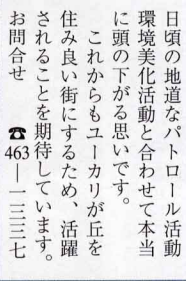 日頃の地道なパトロール活動
環境美化活動と合わせて本当
に頭の下がる思いです。
これからもユーカリが丘を
住み良い街にするため、活躍
されることを期待しています。
お問合せ ☎463―一三三七